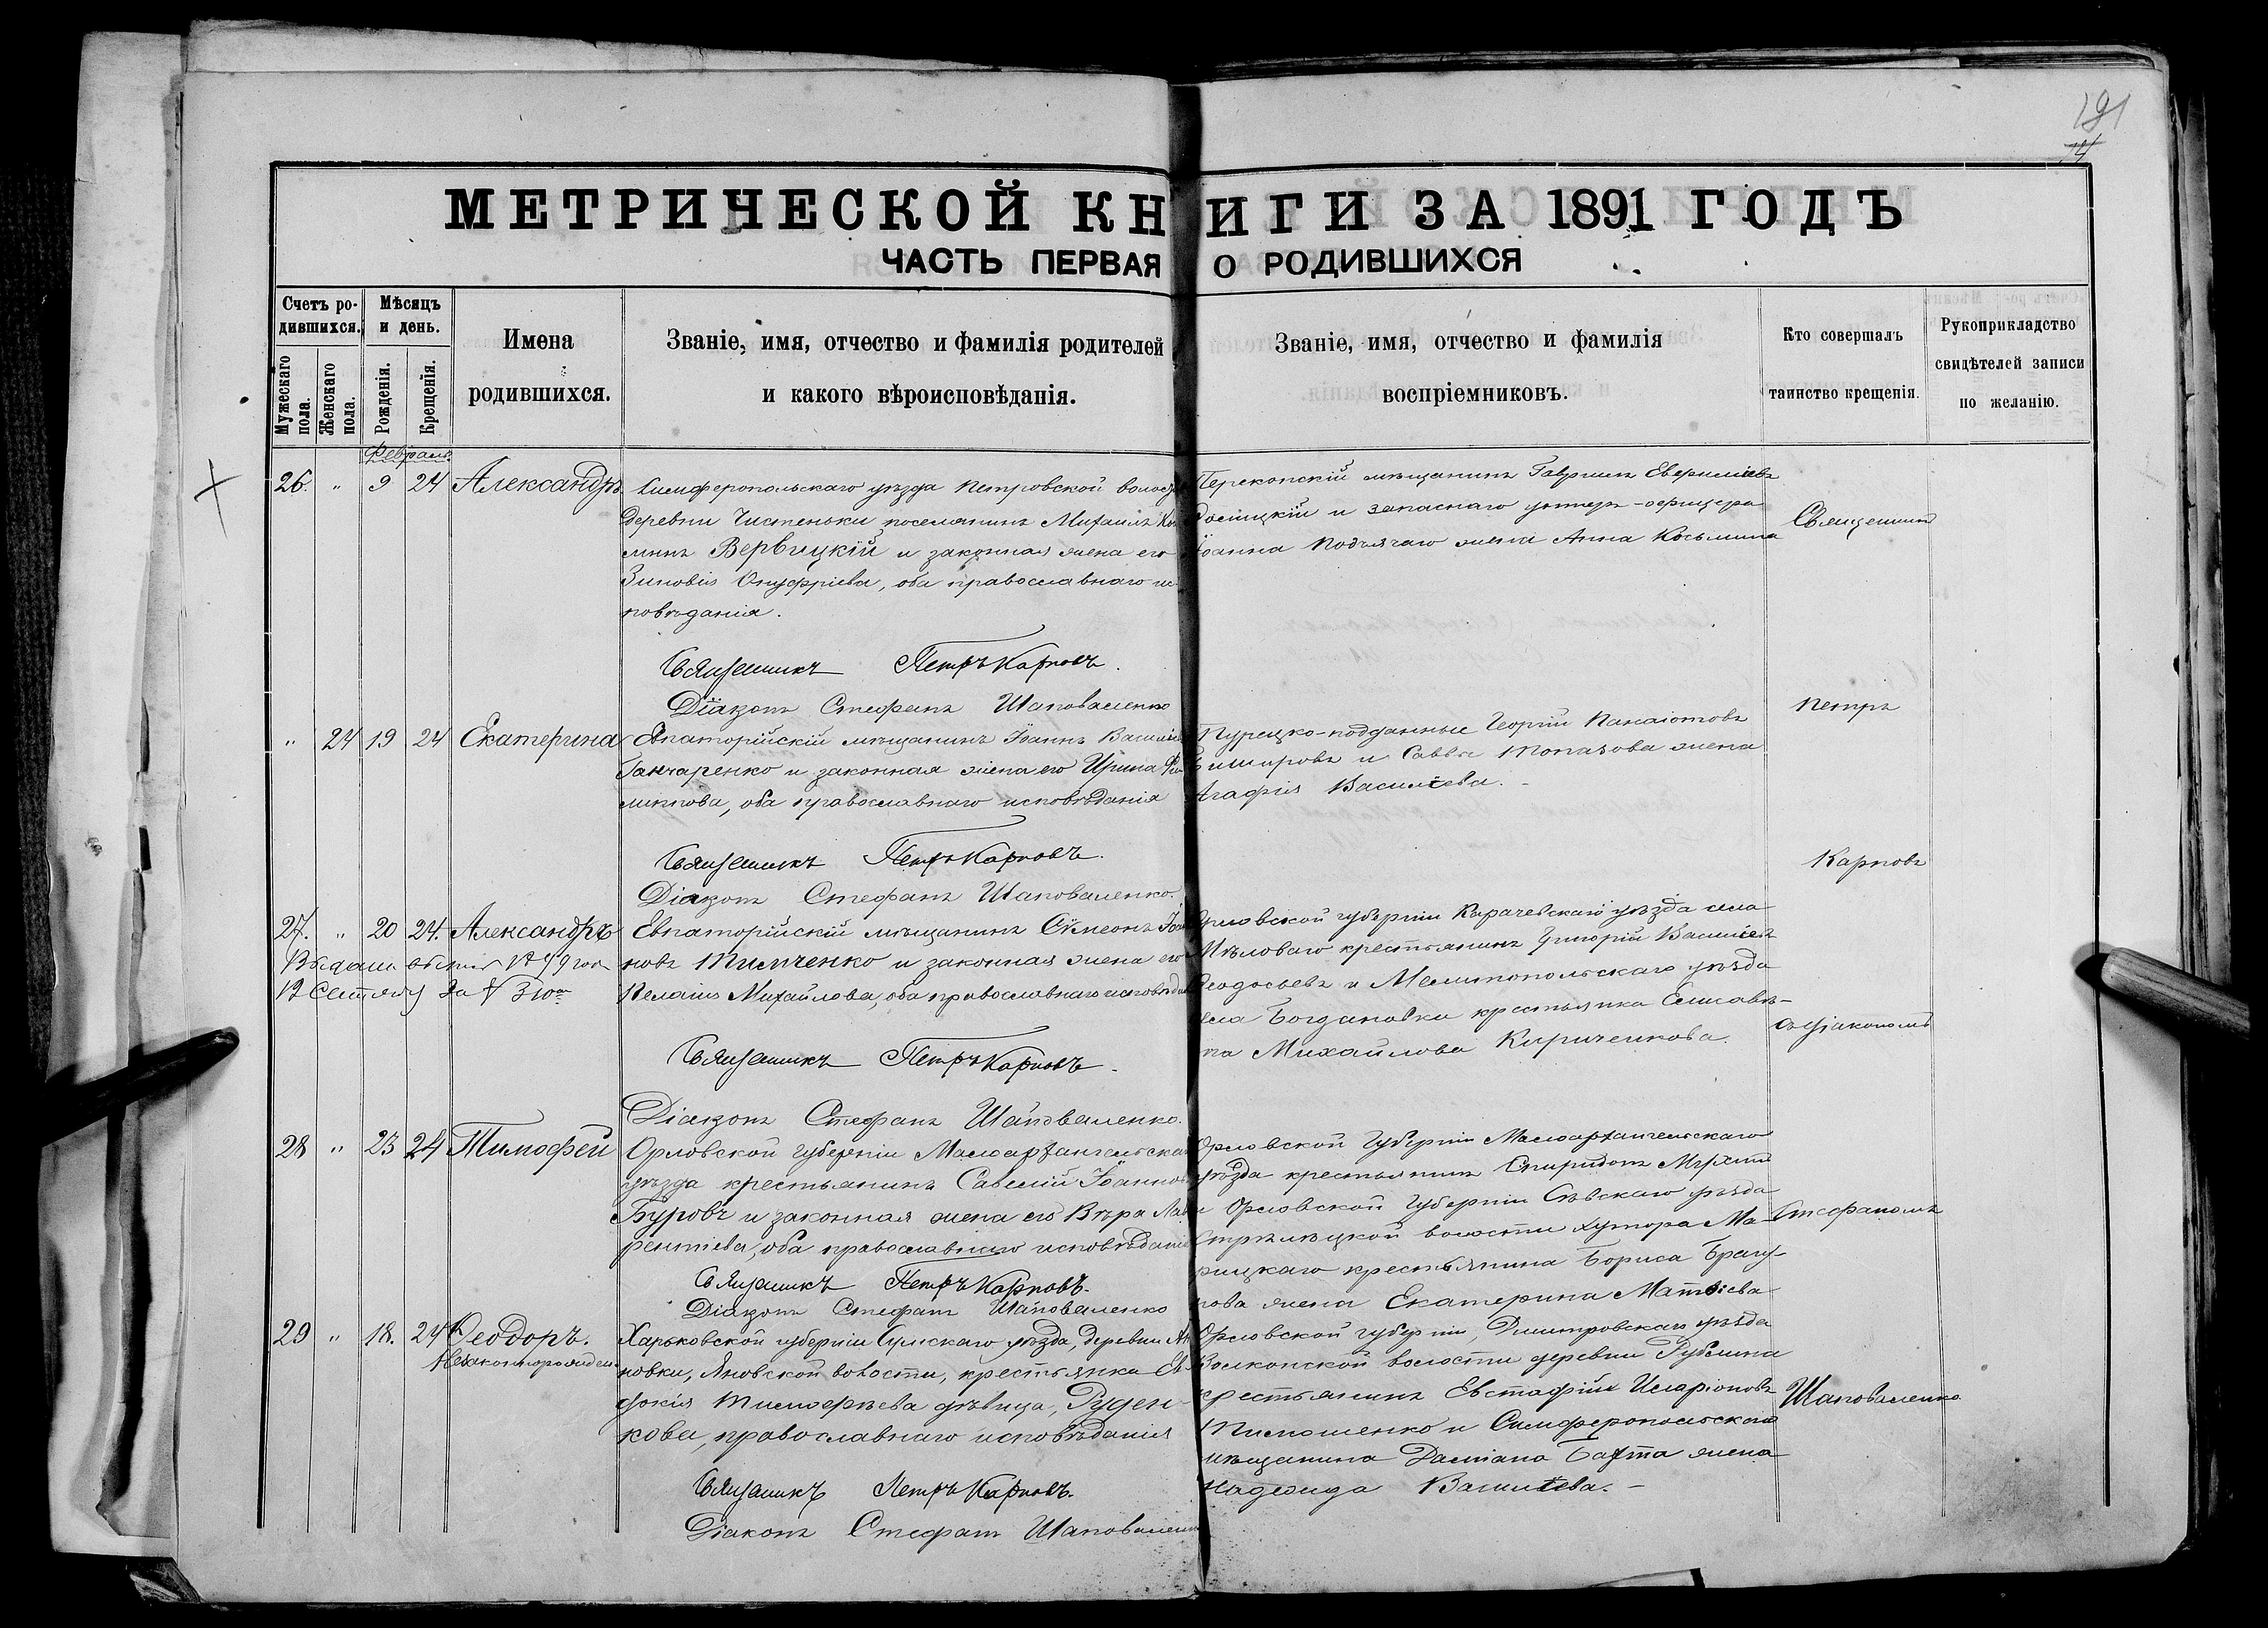 191
14
МЕТРИЧЕСКОЙ КНИГИ ЗА 1891 ГОДЪ
ЧАСТЬ ПЕРВАЯ О РОДИВШИХСЯ
Счетъ родившихся.
Мужескаго пола.
Женскаго пола.
Мѣсяцъ и день.
Рожденія.
Крещенія.
Имена родившихся.
Званіе, имя, отчество и фамилія родителей
и какого вѣроисповѣданія.
Званіе, имя, отчество и фамилія
воспріемниковъ.
Кто совершалъ
таинство крещенія.
Рукоприкладство
свидѣтелей записи
по желанію.
Февраль.
26. " 9 24 Александръ
Симферопольскаго уѣзда Петровской волости
деревни Чистеньки поселянинъ Михаилъ
Вербицкій и законная жена его
Зиновія Онуфріева, оба православнаго ис-
повѣданія.
Священникъ Петръ Карповъ.
Діаконъ Стефанъ Шаповаленко
Перекопскій мѣщанинъ Гавріилъ
и запаснаго унтеръ-офицера
Іоанна Подчасаго жена Анна Косьмина
" 24 19 24 Екатерина
Евпаторійскій мѣщанинъ Іоаннъ Василіевъ
Ганчаренко и законная жена его Ирина Фи-
липпова, оба православнаго исповѣданія
Священникъ Петръ Карповъ.
Діаконъ Стефанъ Шаповаленко.
Турецко-подданные Георгій Панаіотовъ
и Саввы Топазова жена
Агафія Василіева. -
27. " 20 24. Александръ
Евпаторійскій мѣщанинъ Сѵмеонъ Іоан-
новъ Тимченко и законная жена его
Пелагія Михайлова, оба православнаго исповѣданія
Священникъ Петръ Карповъ.
Діаконъ Стефанъ Шаповаленко.
Орловской губерніи Карачевскаго уѣзда села
Мѣловаго крестьянинъ Григорій Василіевъ
Ѳеодосьевъ и Мелитопольскаго уѣзда
села Богдановки крестьянка Елисаве-
та Михайлова Кириченкова.
28 " 23 24 Тимофей
Орловской губерніи Малоархангельскаго
уѣзда крестьянинъ Савелій Іоанновъ
Буровъ и законная жена его Вѣра Лав-
рентіева, оба православнаго исповѣданія
Священникъ Петръ Карповъ.
Діаконъ Стефанъ Шаповаленко
Орловской губерніи Малоархангельскаго
уѣзда крестьянинъ Спиридонъ
и Орловской губерніи Сѣвскаго уѣзда
Стрѣлецкой волости хутора Ма-
рицкаго крестьянина Бориса
жена Екатерина Матвіева
29 " 18. 24 Ѳеодоръ.
незаконнорожден.
Харьковской губерніи Сумскаго уѣзда, деревни
новки, Яновской волости, крестьянка Ев-
докія Тимофѣева дѣвица, Руден-
кова, православнаго исповѣданія
Священникъ Петръ Карповъ.
Діаконъ Стефанъ Шаповаленко
Орловской губерніи, Дмитровскаго уѣзда
волости деревни
крестьянинъ Евстафій Иларіоновъ
Тимошенко и Симферопольскаго
мѣщанина Даміана жена
Надежда Василіева. -
Священникъ
Петръ
Карповъ
съ діакономъ
Стефаномъ
Шаповаленко